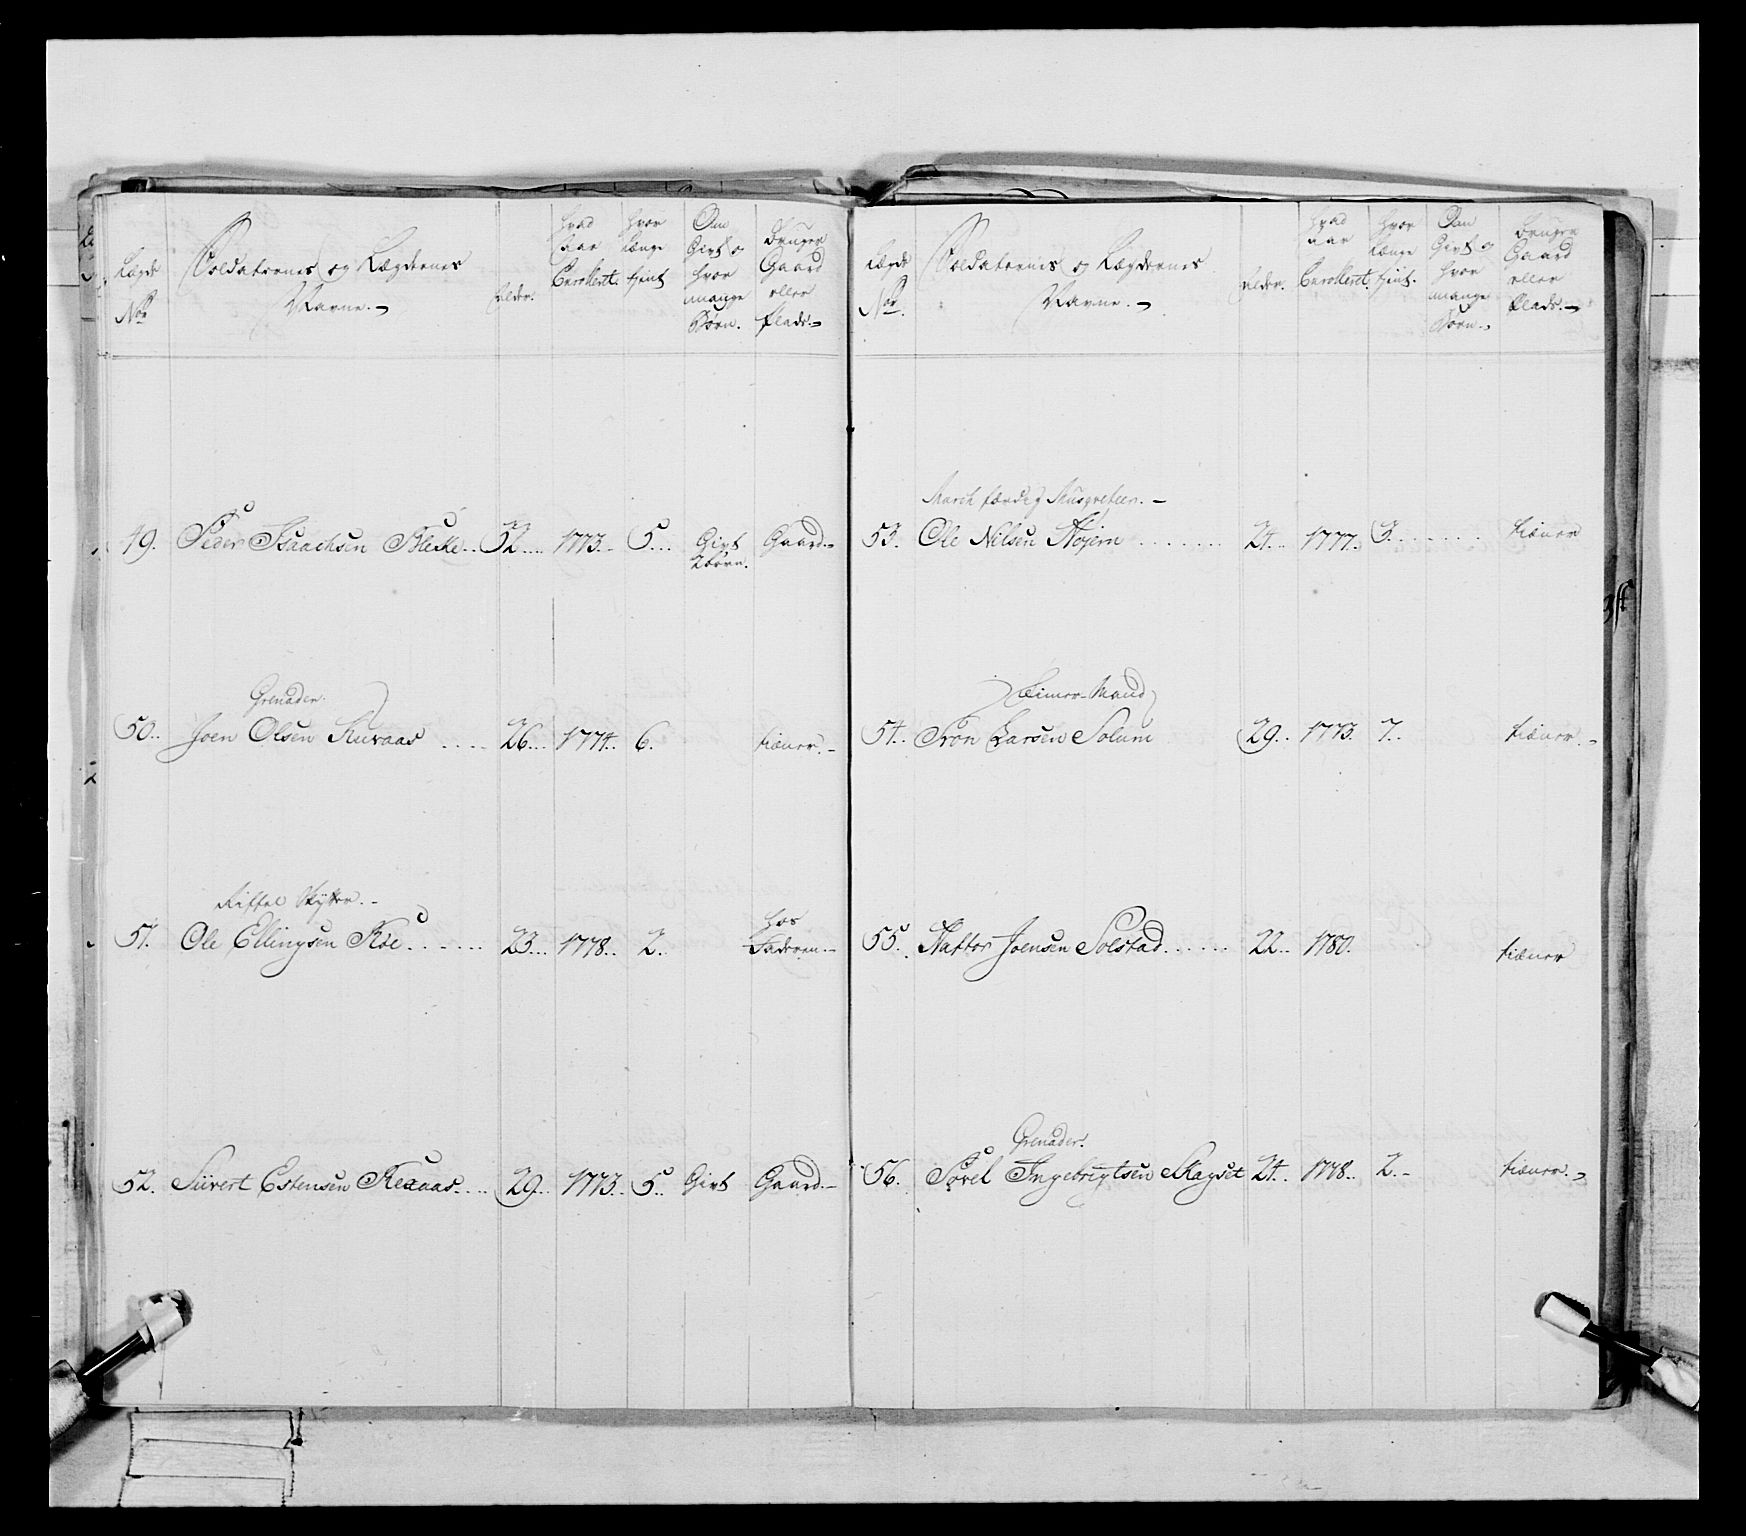 Lægds No
Soldaternes og Lægdernes Navne.
Alder.
hvad aar Enrolleret.
hvor længe tjent
Om Givt og hvor mange Børn.
bruger Gaard eller Plads.
49. Peder Isaachsen Blekke .. 32 .... 1773. 5 .... Givt 2 børn. Gaard.
Grenader.
50. Joen Olsen Kuraas .... 26 ... 1774. 6. tiener.
Riffel Skytter.
51. Ole Ellingsen Koe ...... 23 ... 1778. 2. hos Faderen.
52. Siivert Estensen .... 29 .. 1773. 5. Givt Gaard.
Lægds No.
Soldaternes og Lægdernes Navne.
Alder.
hvad aar Enrolleret
hvor længe tjent.
Om Givt og hvor mange Børn.
bruger Gaard eller Plads.
March færdig Musqveteer.
53. Ole Nilsen ........ 24 .. 1777. 3 ....... tiener
Timer-Mand
54. Tron Larsen Solum 29. 1773. 7. tiener.
55. Joensen Solstad ...... 22 .. 1780. tiener
Grenader.
56. Ingebrigtsen 24. 1778. 2. tiener.